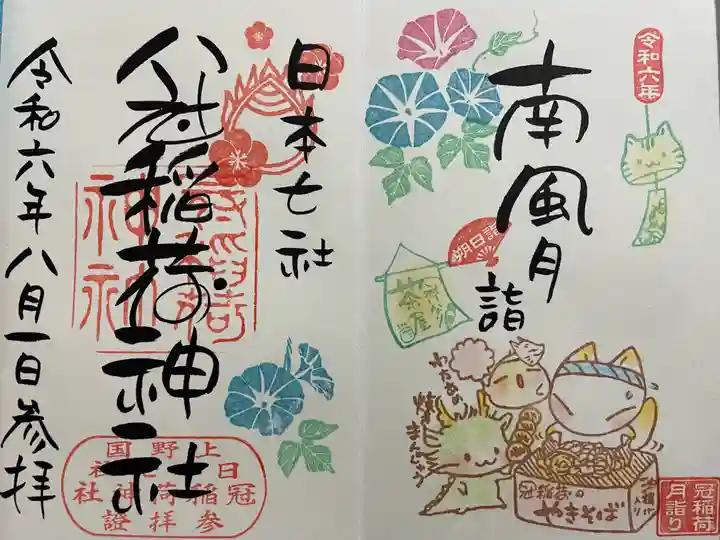 南風月
詣
令和六年
朔日詣
茶屋
わたあめ
焼きまんじゅう
冠稲荷の
やきそば
油揚げ
入り
冠稲荷
月詣り
日本七社
冠稲荷神社
令和六年八月一日参拝
上野国
日本七社
冠稲荷神社
参拝證